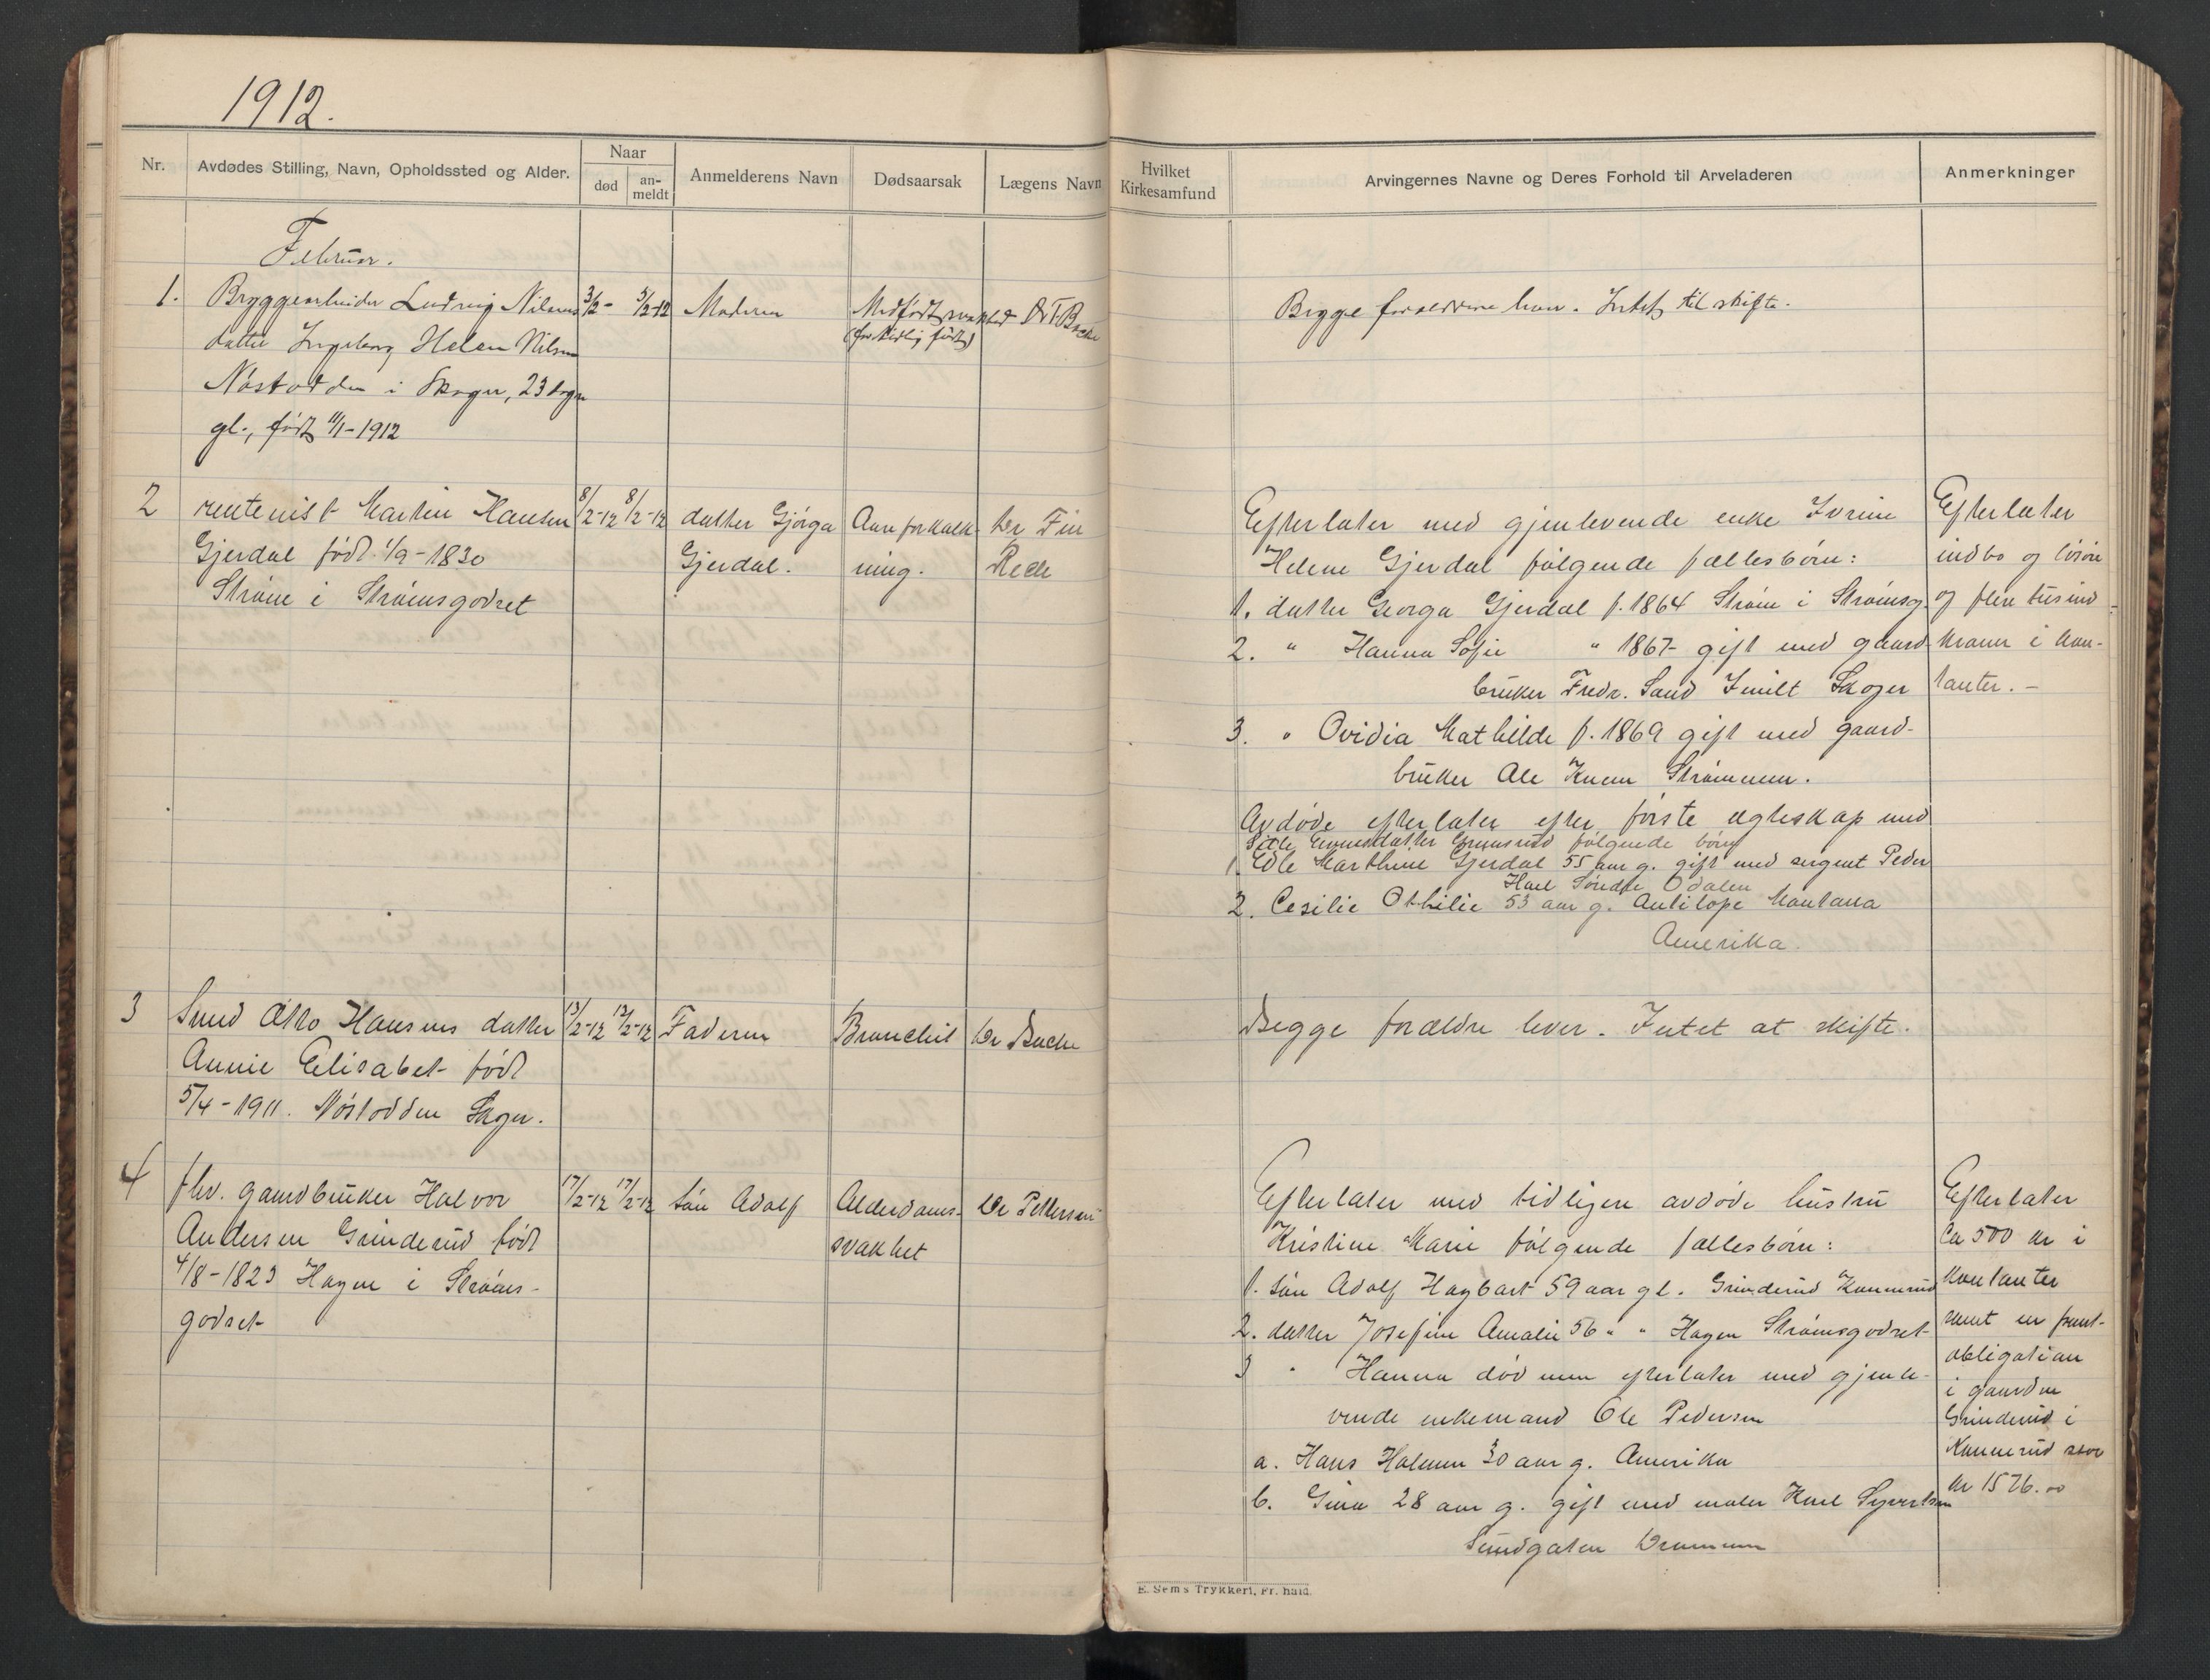 1912.
Nr.
Avdødes Stilling, Navn, Opholdssted og Alder.
Naar
død
an-
meldt
Anmelderens Navn
Dødsaarsak
Lægens Navn
Hvilket
Kirkesamfund
Arvingernes Navne og Deres Forhold til Arveladeren
Anmerkninger
Februar.
1. Bryggearbeider Ludvig Nilsens 3/2- 5/2-12 Moderen Medfødt svakhet Dr F Bache
datter Ingeborg Helen Nilsen (for tidlig født)
Nøstodden i Skoger, 23 dage
gl., født 11/1-1912
Begge forældrene lever. Intet til skifte.
2 rentenist Martin Hansen 8/2-12 8/2-12 datter Gjórga Aareforkalk- Dr Fin
Gjerdal født 1/9-1830 Gjerdal. ning.
Strøm i Strømsgodset
Efterlater med gjenlevende enke
Helene Gjerdal følgende fællesbørn:
1. datter Georga Gjerdal f. 1864 Strøm i Strømsg.
2. " Hanna Sofie " 1867- gift med gaard-
bruker Fredr. Sand Skoger
3. " Ovidia Mathilde f. 1869 gift med gaard-
bruker Ole Strømmen.
Avdøde efterlater efter første egteskap med
følgende børn
1. Edle Marthine Gjerdal 55 aar g. gift med sergent Peder
Søndre Odalen
2. Cesilie Othilie 53 aar g. Antilope Montana
Amerika.
Efterlater
indbo og løsøre
og flere tusind
kroner i kon-
tanter. -
3 Smed Otto Hansens datter 13/2-12 13/2-12 Faderen Bronchit Dr Bache
Annie Elisabet født
5/4-1911. Nøstodden Skoger.
Begge forældre lever. Intet at skifte.
4 fhv. gaardbruker Halvor 17/2-12 17/2-12 søn Adolf Alderdoms- Dr Pettersen
Andersen Grinderud født svakhet
4/8-1823 Hagen i Strøms-
godset
Efterlater med tidligere avdøde hustru
Kristine Marie følgende fællesbørn:
1. søn Adolf Hagbart 59 aar gl. Grinderud Konnerud
2. datter Josefine Amalie 56 " " Hagen Strømsgodset
3 " Hanna død men efterlater med gjenle-
vende enkemand Ole Pedersen
a. Hans 30 aar g. Amerika
b. Gina 28 aar g. gift med maler Karl Syvertsen
Sundgaten Drammen
Efterlater
Ca 500 kr i
kontanter
samt en pant-
obligation
i gaarden
Grinderud i
Konnerud stor
kr 1576.00
E. Sem's Trykkeri, Fr. hald.